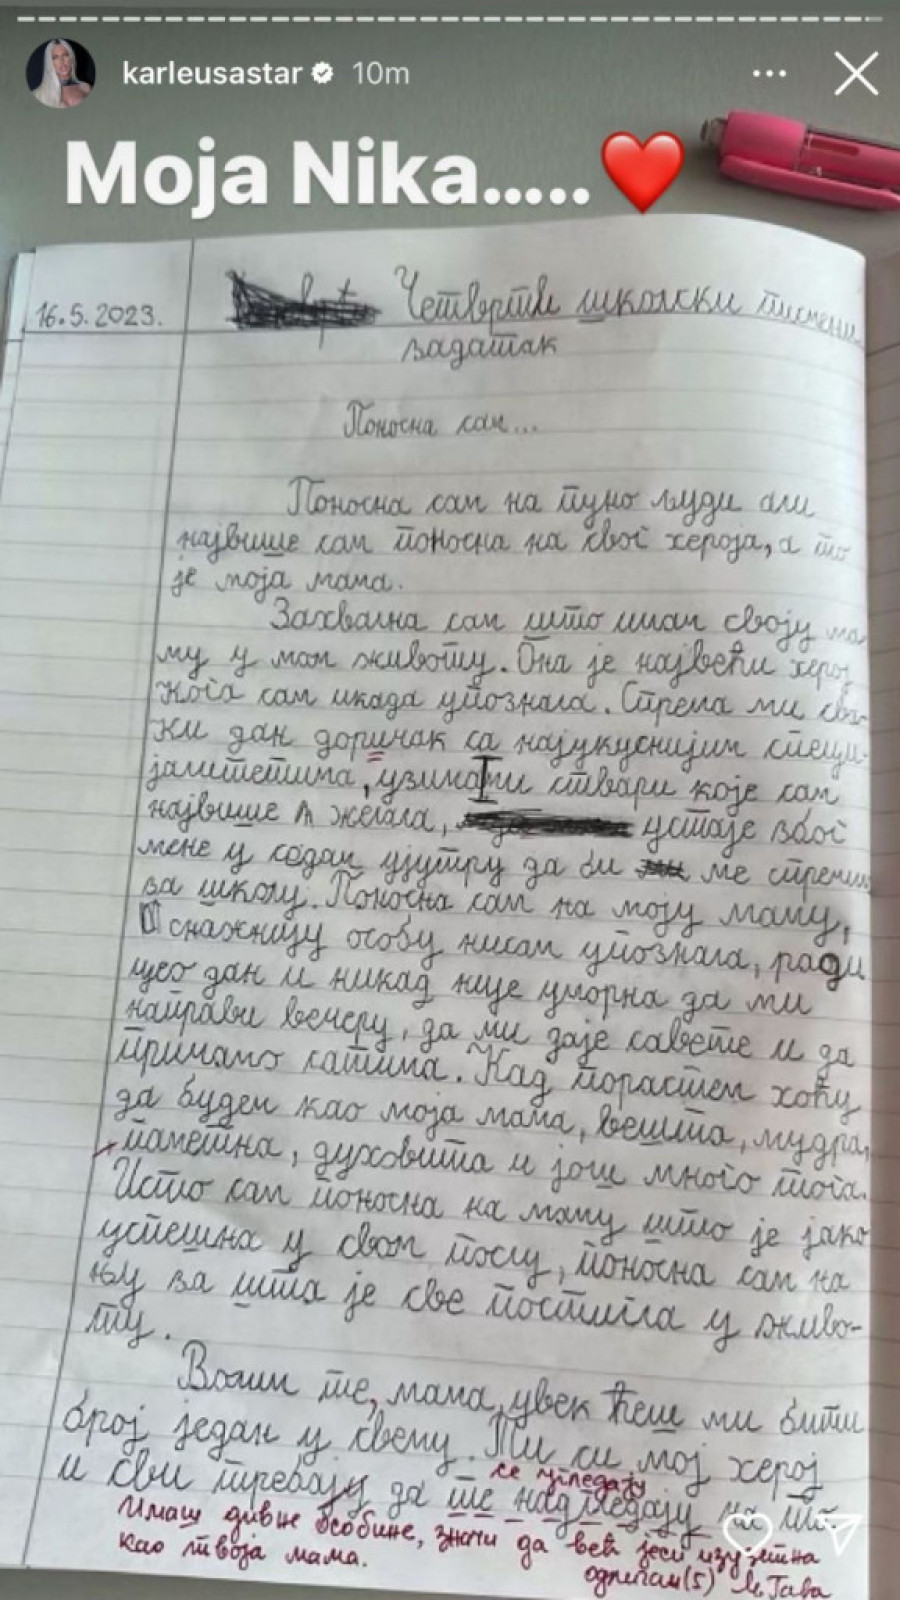 karleusastar 10m
Moja Nika.....❤️
16.5.2023.
Четврти школски писмени
задатак
Поносна сам...
Поносна сам на пуно људи али
највише сам поносна на свог хероја, а то
је моја мама.
Захвална сам што имам своју ма
му у мом животу. Она је највећи херој
кога сам икада упознала. Спрема ми сва-
ки дан доручак са најукуснијим специ-
јалитетима, узима ми ствари које сам
највише желела, устаје због
мене у седам ујутру да би ме спремила
за школу. Поносна сам на моју маму,
снажнију особу нисам упознала, ради
цео дан и никад није уморна да ми
направи вечеру, да ми даје савете и да
причамо сатима. Кад порастем хоћу
да будем као моја мама, вешта, мудра,
паметна, духовита и још много тога.
Исто сам поносна на маму што је јако
успешна у свом послу, поносна сам на
њу за шта је све постигла у живо-
ту.
Волим те, мама, увек ћеш ми бити
број један у свету. Ти си мој херој
се угледају
и сви требају да те надгледају на
Имаш дивне особине, значи да већ јеси изузетна
као твоја мама.
одличан (5)